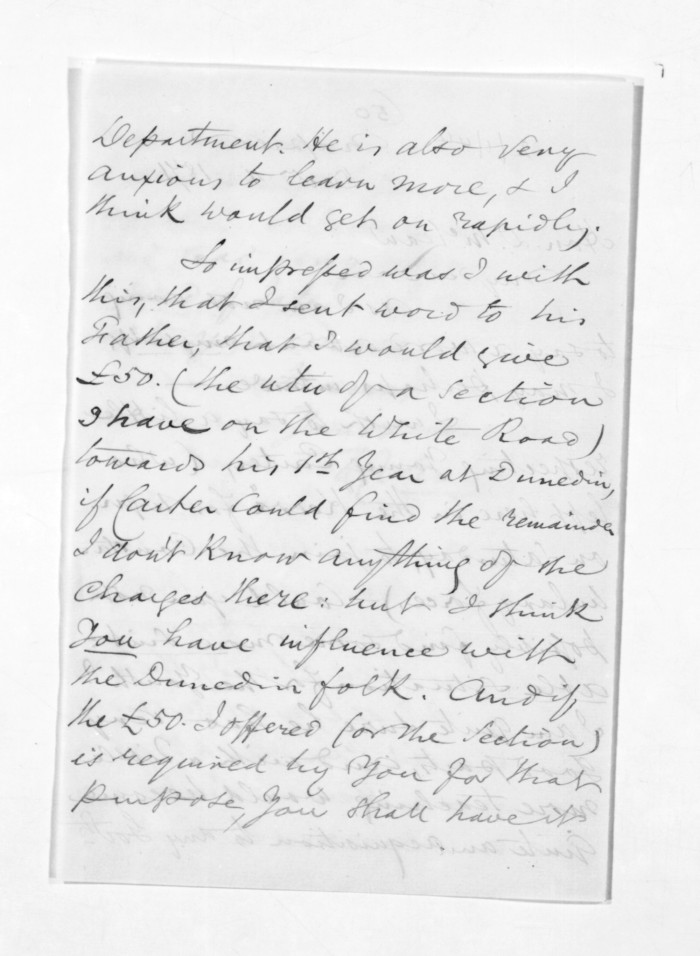 Department. He is also very
anxious to learn more, & I
think would get on rapidly.
So impressed was I with
this, that I sent word to his
Father, that I would give
£50. (the utu of a Section
I have on the White Road)
towards his 1st Year at Dunedin,
if Carter could find the remainder
I don't know anything of the
Charges there: but I think
You have influence with
the Dunedin folk. And if
the £50. I offered (or the Section)
is required by You for that
purpose, You shall have it